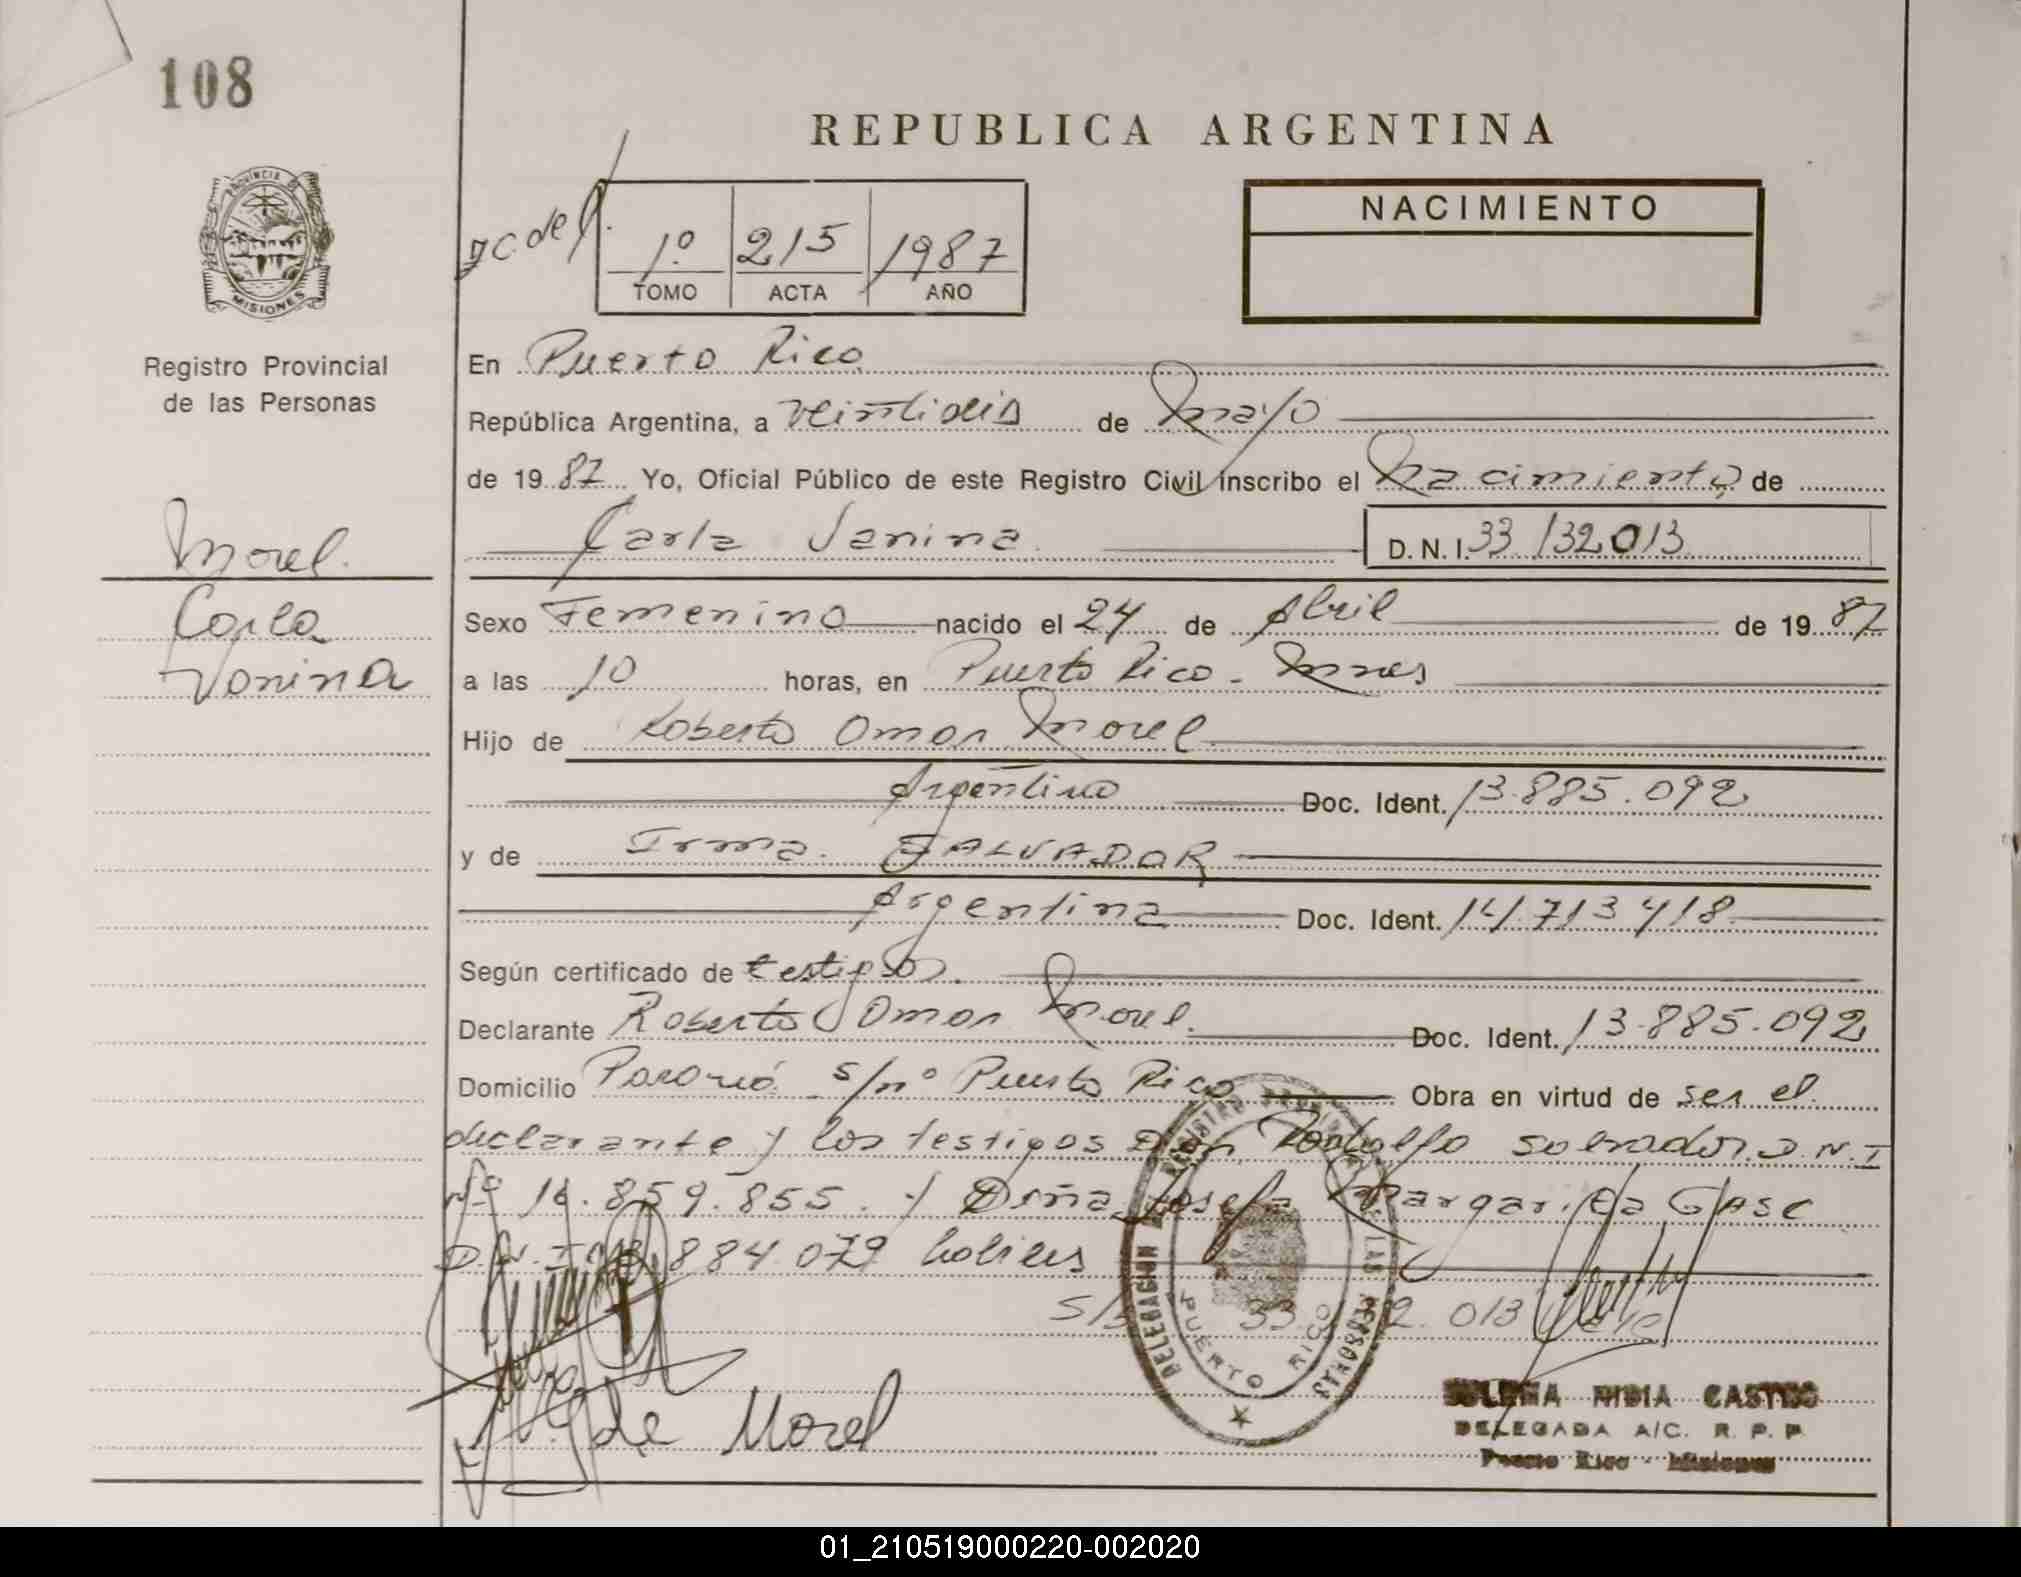 108
REPUBLICA ARGENTINA
NACIMIENTO
1º 215 1987
TOMO ACTA AÑO
PROVINCIA DE
MISIONES
Registro Provincial
de las Personas
Morel.
Carla
Vanina
En Puerto Rico
República Argentina, a veintidós de Mayo
de 1987 Yo, Oficial Público de este Registro Civil inscribo el Nacimiento de
Carla Vanina D. N. I. 33.132.013
Sexo Femenino nacido el 24 de Abril de 1987
a las 10 horas, en Puerto Rico - Mnes
Hijo de Roberto Omar Morel
Argentino Doc. Ident. 13.885.092
y de Irma SALVADOR
Argentina Doc. Ident. 14.713.418
Según certificado de testigos.
Declarante Roberto Omar Morel. Doc. Ident. 13.885.092
Domicilio s/nº Puerto Rico Obra en virtud de ser el
declarante y los testigos Don Salvador D.N.I
Nº 14.859.855 y Doña Josefa Margarita
D.N.I. 884.079
33.132.013
de Morel
DELEGACION REGISTRO PROVINCIAL DE LAS PERSONAS
PUERTO RICO
NIDIA
DELEGADA A/C. R. P. P.
Puerto Rico - Misiones
01_210519000220-002020